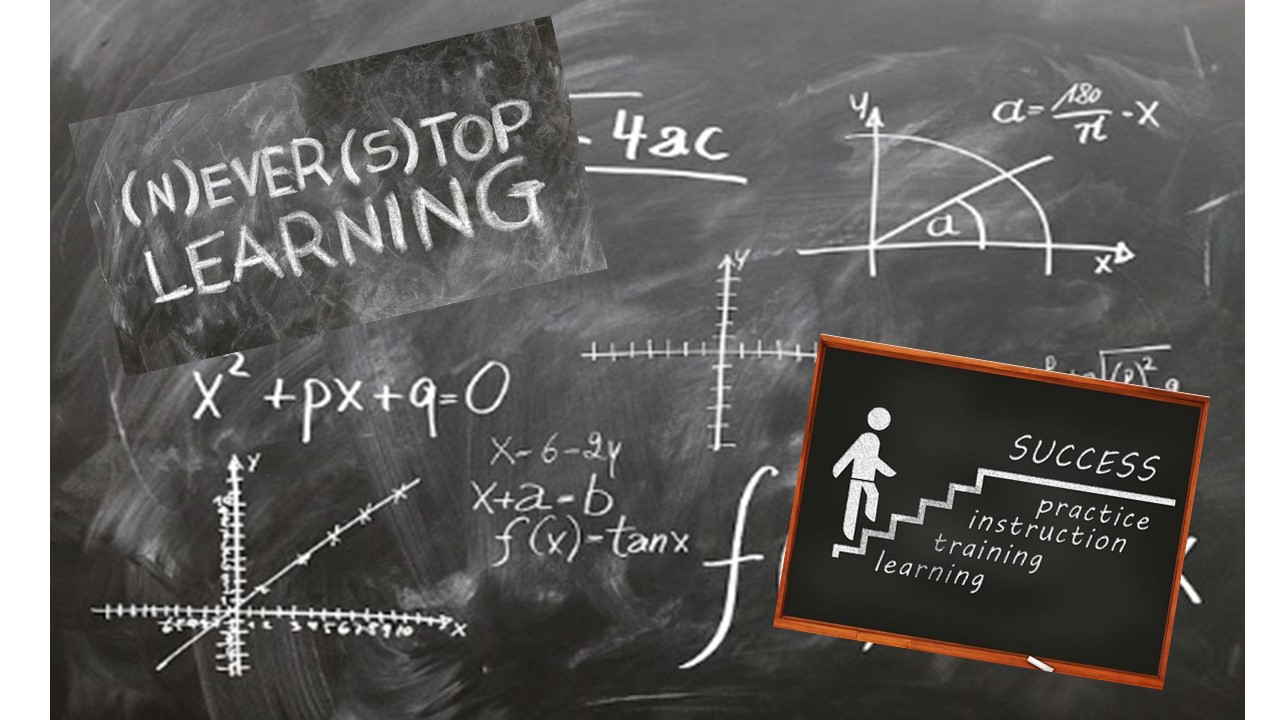 (N)EVER (S)TOP
LEARNING
- 4ac
y
a=180/π-X
a
x
y
X² +px+q=0
X-6-2y
X+a-b
f(x)-tanx
y
x
f
SUCCESS
practice
instruction
training
learning